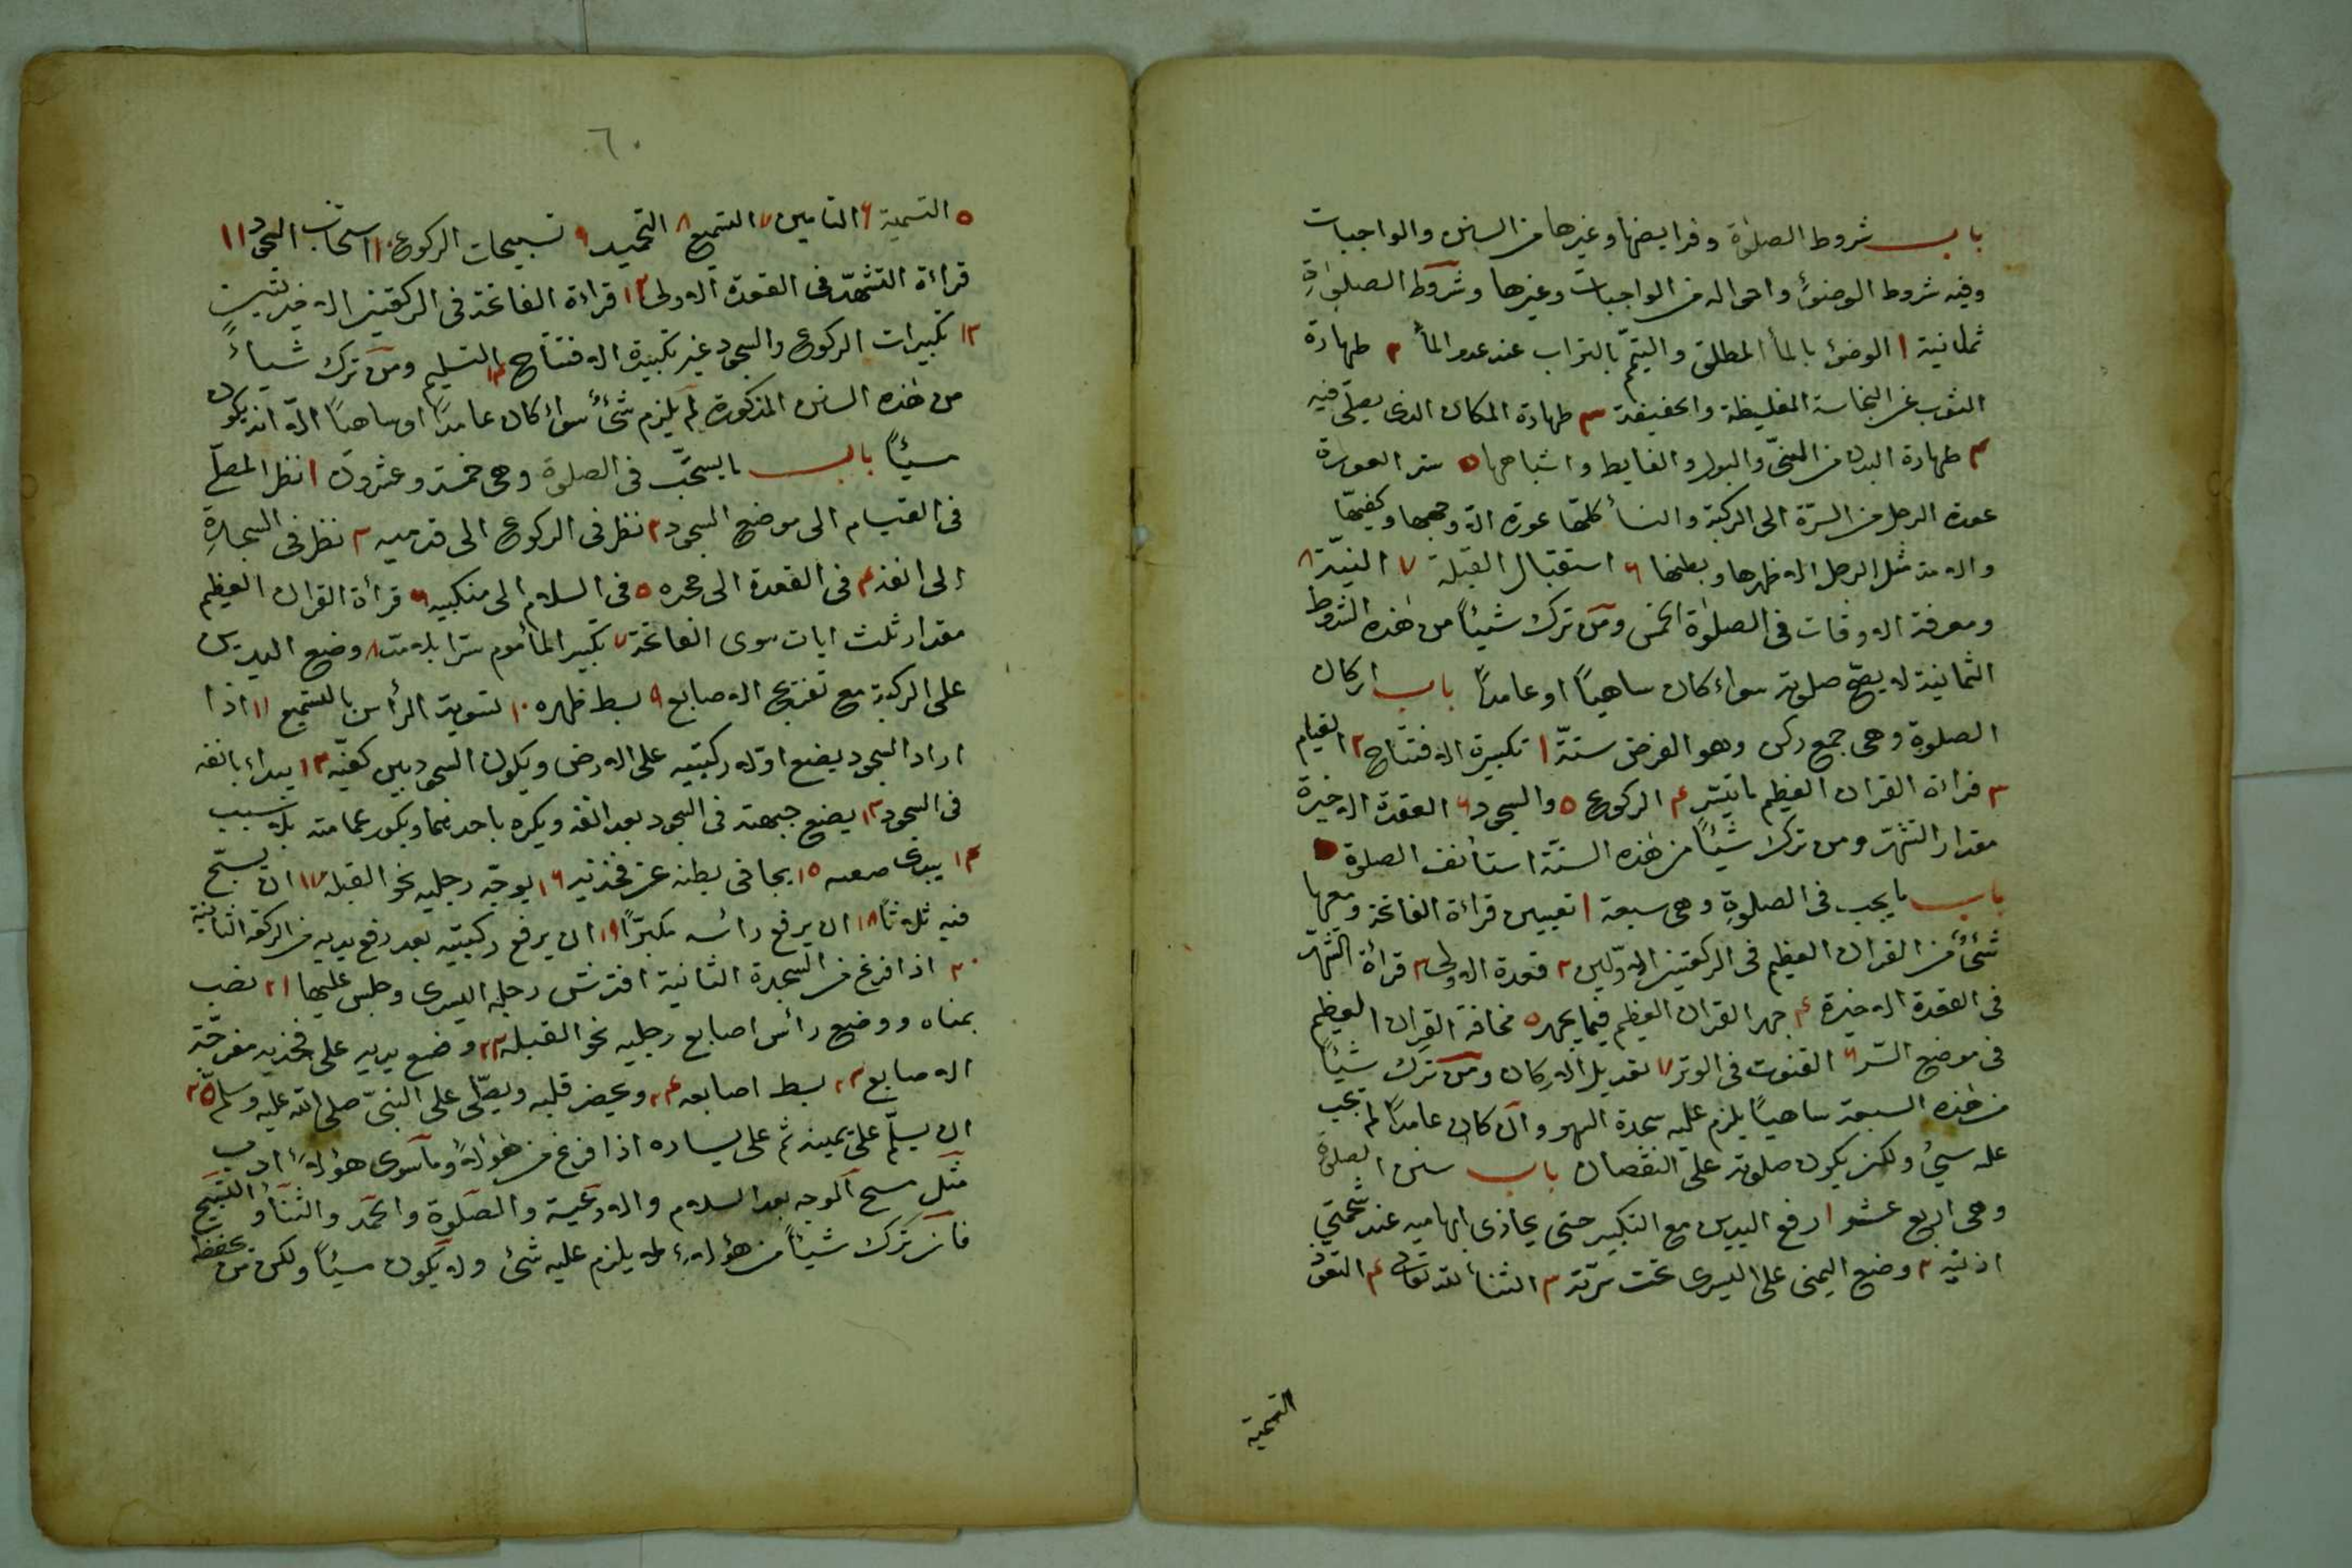 باب شروط الصلوٰة وفرايضها وغيرها من السنن والواجبات
وفيه شروط الوضوٴ واحواله من الواجبات وغيرها وشروط الصلوٰةِ
ثمانية ١ الوضوٴ بالمأ المطلق والتيمّم بالتراب عند عدم المأ ٢ طهارة
الثوب عن النجاسة الغليظة والخفيفة ٣ طهارة المكان الذى يصلّى فيه
۴ طهارة البدن من المنىّ والبول والغايط واشباهها ٥ ستر العورة
عورة الرجل من السرّة الى الركبة والنسأ كلّها عورة الا وجهها وكفيهّا
والامة مثل الرجل الا ظهرها وبطنها ۶ استقبال القبلة ٧ النيّة ٨
ومعرفة الاوقات فى الصلوٰة الخمس ومن ترك شيئاً من هٰذه الشروط
الثمانية لا يصحّ صلوته سواء كان ساهياً او عامداً باب اركان
الصلوةِ وهى جمع ركن وهو الفرض ستّة ١ تكبيرة الافتتاح ٢ القيام
٣ قراءة القران العظيم ما تيسّر ۴ الركوع ٥ والسجود ۶ العقدة الاخيرة
مقدار التشهّد ومن ترك شيئاً من هٰذه الستّة استأنف الصلوة
باب ما يجب فى الصلوةِ وهى سبعة ١ تعيين قراءة الفاتحة ومعها
شئٌ من القران العظيم فى الركعتين الاوّلين ٢ قعدة الاولى ٣ قرأة التشهّد
فى القعدة الاخيرة ۴ جهر القران العظيم فيما يجهر ٥ مخافة القران العظيم
فى موضع السّر ۶ القنوت فى الوتر ٧ تعديل الاركان ومن ترك شيئاً
من هٰذه السبعة ساهياً يلزم عليه سجدة السهو وان كان عامداً لم يجب
عله سئ ولكن يكون صلوته على النقصان باب سنن الصلوة
وهى اربع عشر ١ رفع اليدين مع التكبير حتى يحاذى ابهاميه عند شحمتي
اذنيه ٢ وضع اليمنى على اليسرى تحت سرّته ٣ الثنا لله تعالى ۴ التعوّذ
التسمية
٦٠
٥ التسمية ۶ التامين ٧ التسميع ٨ التحميد ٩ تسبيحات الركوع ١٠ السجود ١١
قراءة التشهّد فى القعدة الاولى ١٢ قراءة الفاتحة فى الركعتين الاخيرتين
١٣ تكبيرات الركوع والسجود غير تكبيرة الافتتاح ١۴ التسليم ومن ترك شياءً
من هٰذه السنن المذكورة لم يلزم شئٌ سواٴ كان عامداً او ساهياً الاّ انه يكون
سيئاً باب ما يستحّب فى الصلوة وهى خمسة وعشرون ١ نظر المصلّي
فى القيام الى موضع السجود ٢ نظر فى الركوع الى قدميه ٣ نظر فى السجدةِ
إلى انفه ۴ فى القعدة الى حجره ٥ فى السلام الى منكبيه ۶ قرأة القران العظيم
مقدار ثلث ايات سوى الفاتحة ٧ تكبير المأموم سرا بلا مد ٨ وضع اليدين
على الركبة مع تفتيح الاصابع ٩ بسط ظهره ١٠ تسوية الرأس بالتسميع ١١ اذا
اراد السجود يضع اولا ركبتيه على الارض ويكون السجود بين كفيّه ١٢ يبداء بانفه
فى السجود ١٣ يضع جبهته فى السجود بعد انفه ويكره باحدهما وبكور عمامته بلا سبب
١۴ يبدى ضبعيه ١٥ يجافى بطنه عن فخذيه ١۶ يوجّه رجليه نحو القبلة ١٧ ان يسبّح
فيه ثلاثاً ١٨ ان يرفع رائسه مكبرّاً ١٩ ان يرفع ركبتيه بعد رفع يديه من الركعة الثانية
٢٠ اذا فرغ من السجدة الثانية افترش رجله اليسرى وجلس عليها ٢١ نصب
يمناه ووضع رائس اصابع رجليه نحو القبلة ٢٢ وضع يديه على فخذيه مفرجة
الاصابع ٢٣ بسط اصابعه ٢۴ ويحضر قلبه ويصلّى على النبىّ صلى الله عليه وسلم ٢٥
ان يسلّم على يمينه ثم على يساره اذا فرغ من هؤلاء وما سوى هؤلاء اداب
مثل مسح الوجه بعد السلام والادعية والصلوة والحمد والثنأ والتسبيح
فان ترك شيئاً من هؤلاء لا يلزم عليه شئ ولا يكون سيئاً ولكن من يحفظ